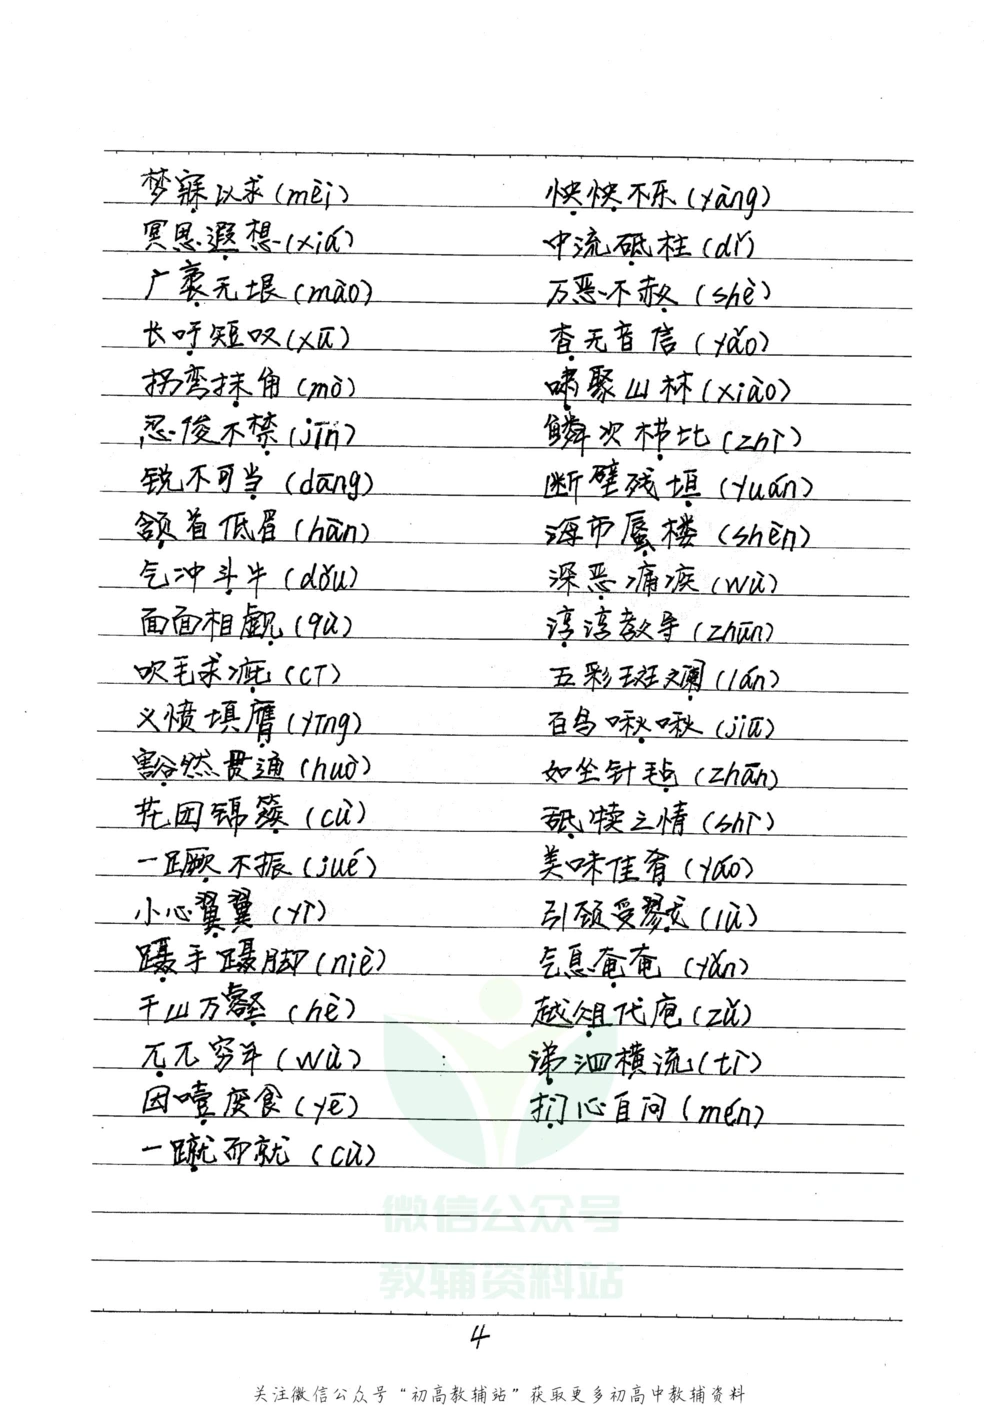 梦寐以求(mèi)
冥思遐想(xiá)
广袤无垠(mào)
长吁短叹(xū)
拐弯抹角(mò)
忍俊不禁(jīn)
锐不可当(dāng)
颔首低眉(hàn)
气冲斗牛(dǒu)
面面相觑(qù)
吹毛求疵(cī)
义愤填膺(yīng)
豁然贯通(huò)
花团锦簇(cù)
一蹶不振(jué)
小心翼翼(yì)
蹑手蹑脚(niè)
千山万壑(hè)
兀兀穷年(wù)
因噎废食(yē)
一蹴而就(cù)
怏怏不乐(yàng)
中流砥柱(dǐ)
万恶不赦(shè)
杳无音信(yǎo)
啸聚山林(xiào)
鳞次栉比(zhì)
断壁残垣(yuán)
海市蜃楼(shèn)
深恶痛疾(wù)
谆谆教导(zhūn)
五彩斑斓(lán)
百鸟啾啾(jiū)
如坐针毡(zhān)
舐犊之情(shì)
美味佳肴(yáo)
引颈受戮(lù)
气息奄奄(yǎn)
越俎代庖(zǔ)
涕泗横流(tì)
扪心自问(mén)
微信公众号
教辅资料站
4
关注微信公众号“初高教辅站”获取更多初高中教辅资料